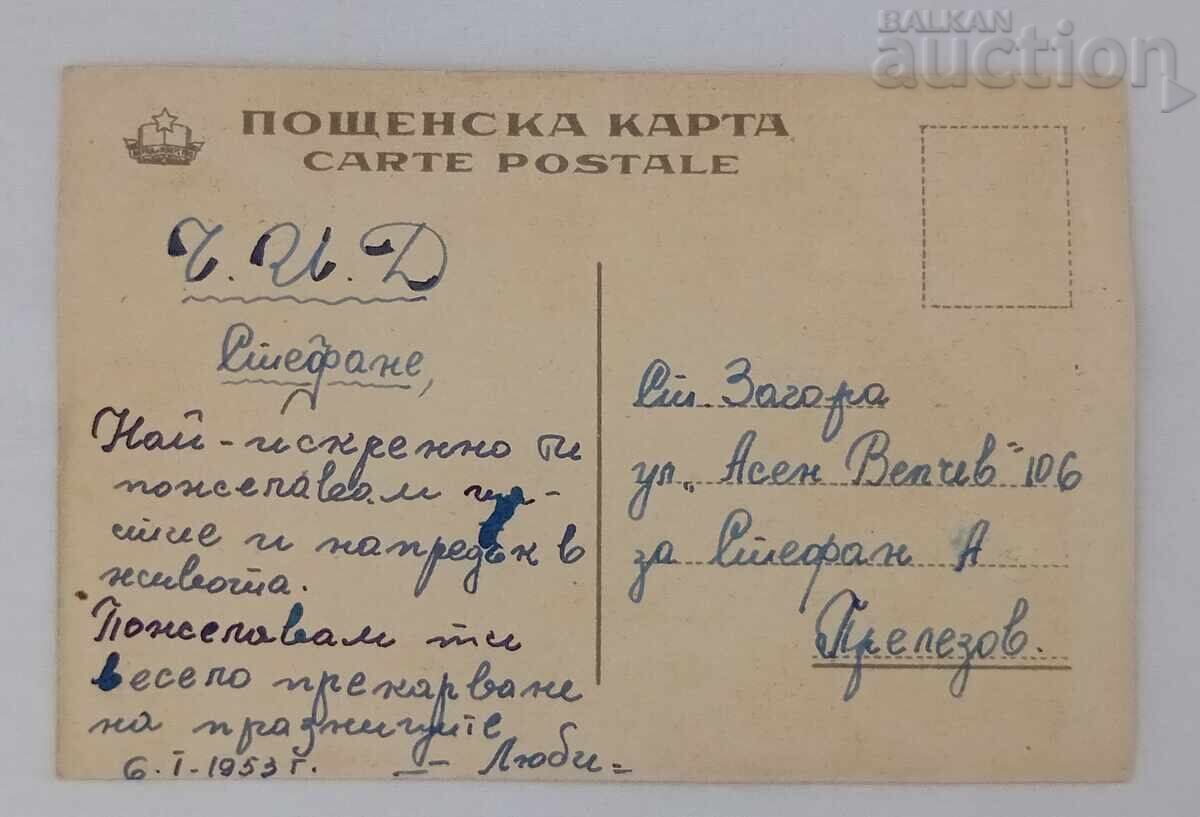 BALKAN
auction
ПОЩЕНСКА КАРТА
CARTE POSTALE
Ч.И.Д
Стефане,
Най-искренно ти
пожелавам ща-
стие и напредък в
живота.
Пожелавам ти
весело прекарване
на празниците
6.I.1953г. Люби
Ст. Загора
ул. „Асен Велчев" 106
за Стефан А
Прелезов.